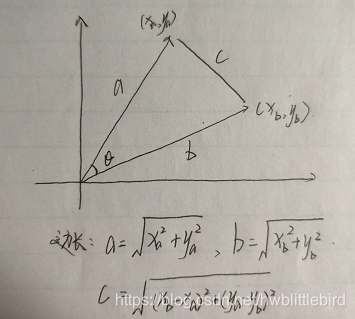 (xₐ, yₐ)
a
c
(x_b, y_b)
θ
b
边长: a=√(xₐ²+yₐ²), b=√(x_b²+y_b²).
c=√((x_b-xₐ)²+(yₐ-y_b)²)
https://blog.csdn.net/hwblittlebird